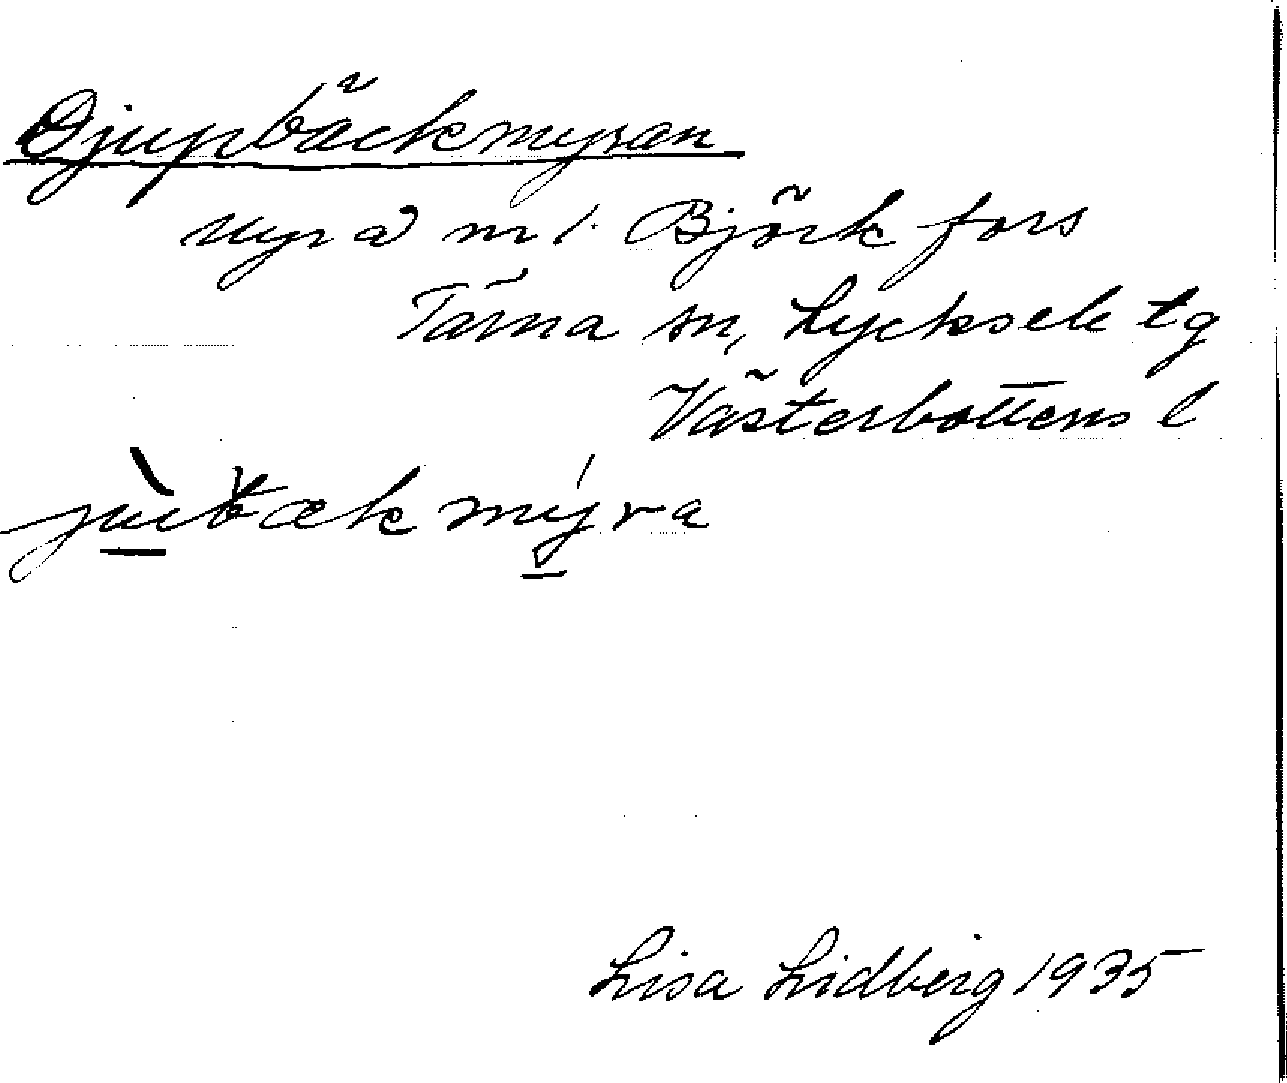 Djupbäckmyran
Myra m l. Björkfors
Tärna sn, Lycksele tg
Västerbottens l
Lisa Lidberg 1935